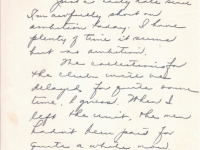 Just a early note since
I'm awfully short on
ambition today. I have
plenty of time it seems
but no ambition.
The collections for
the clerks write was
delayed for quite some
time, I guess. When I
left the unit, the men
hadn't been paid for
quite a while now.